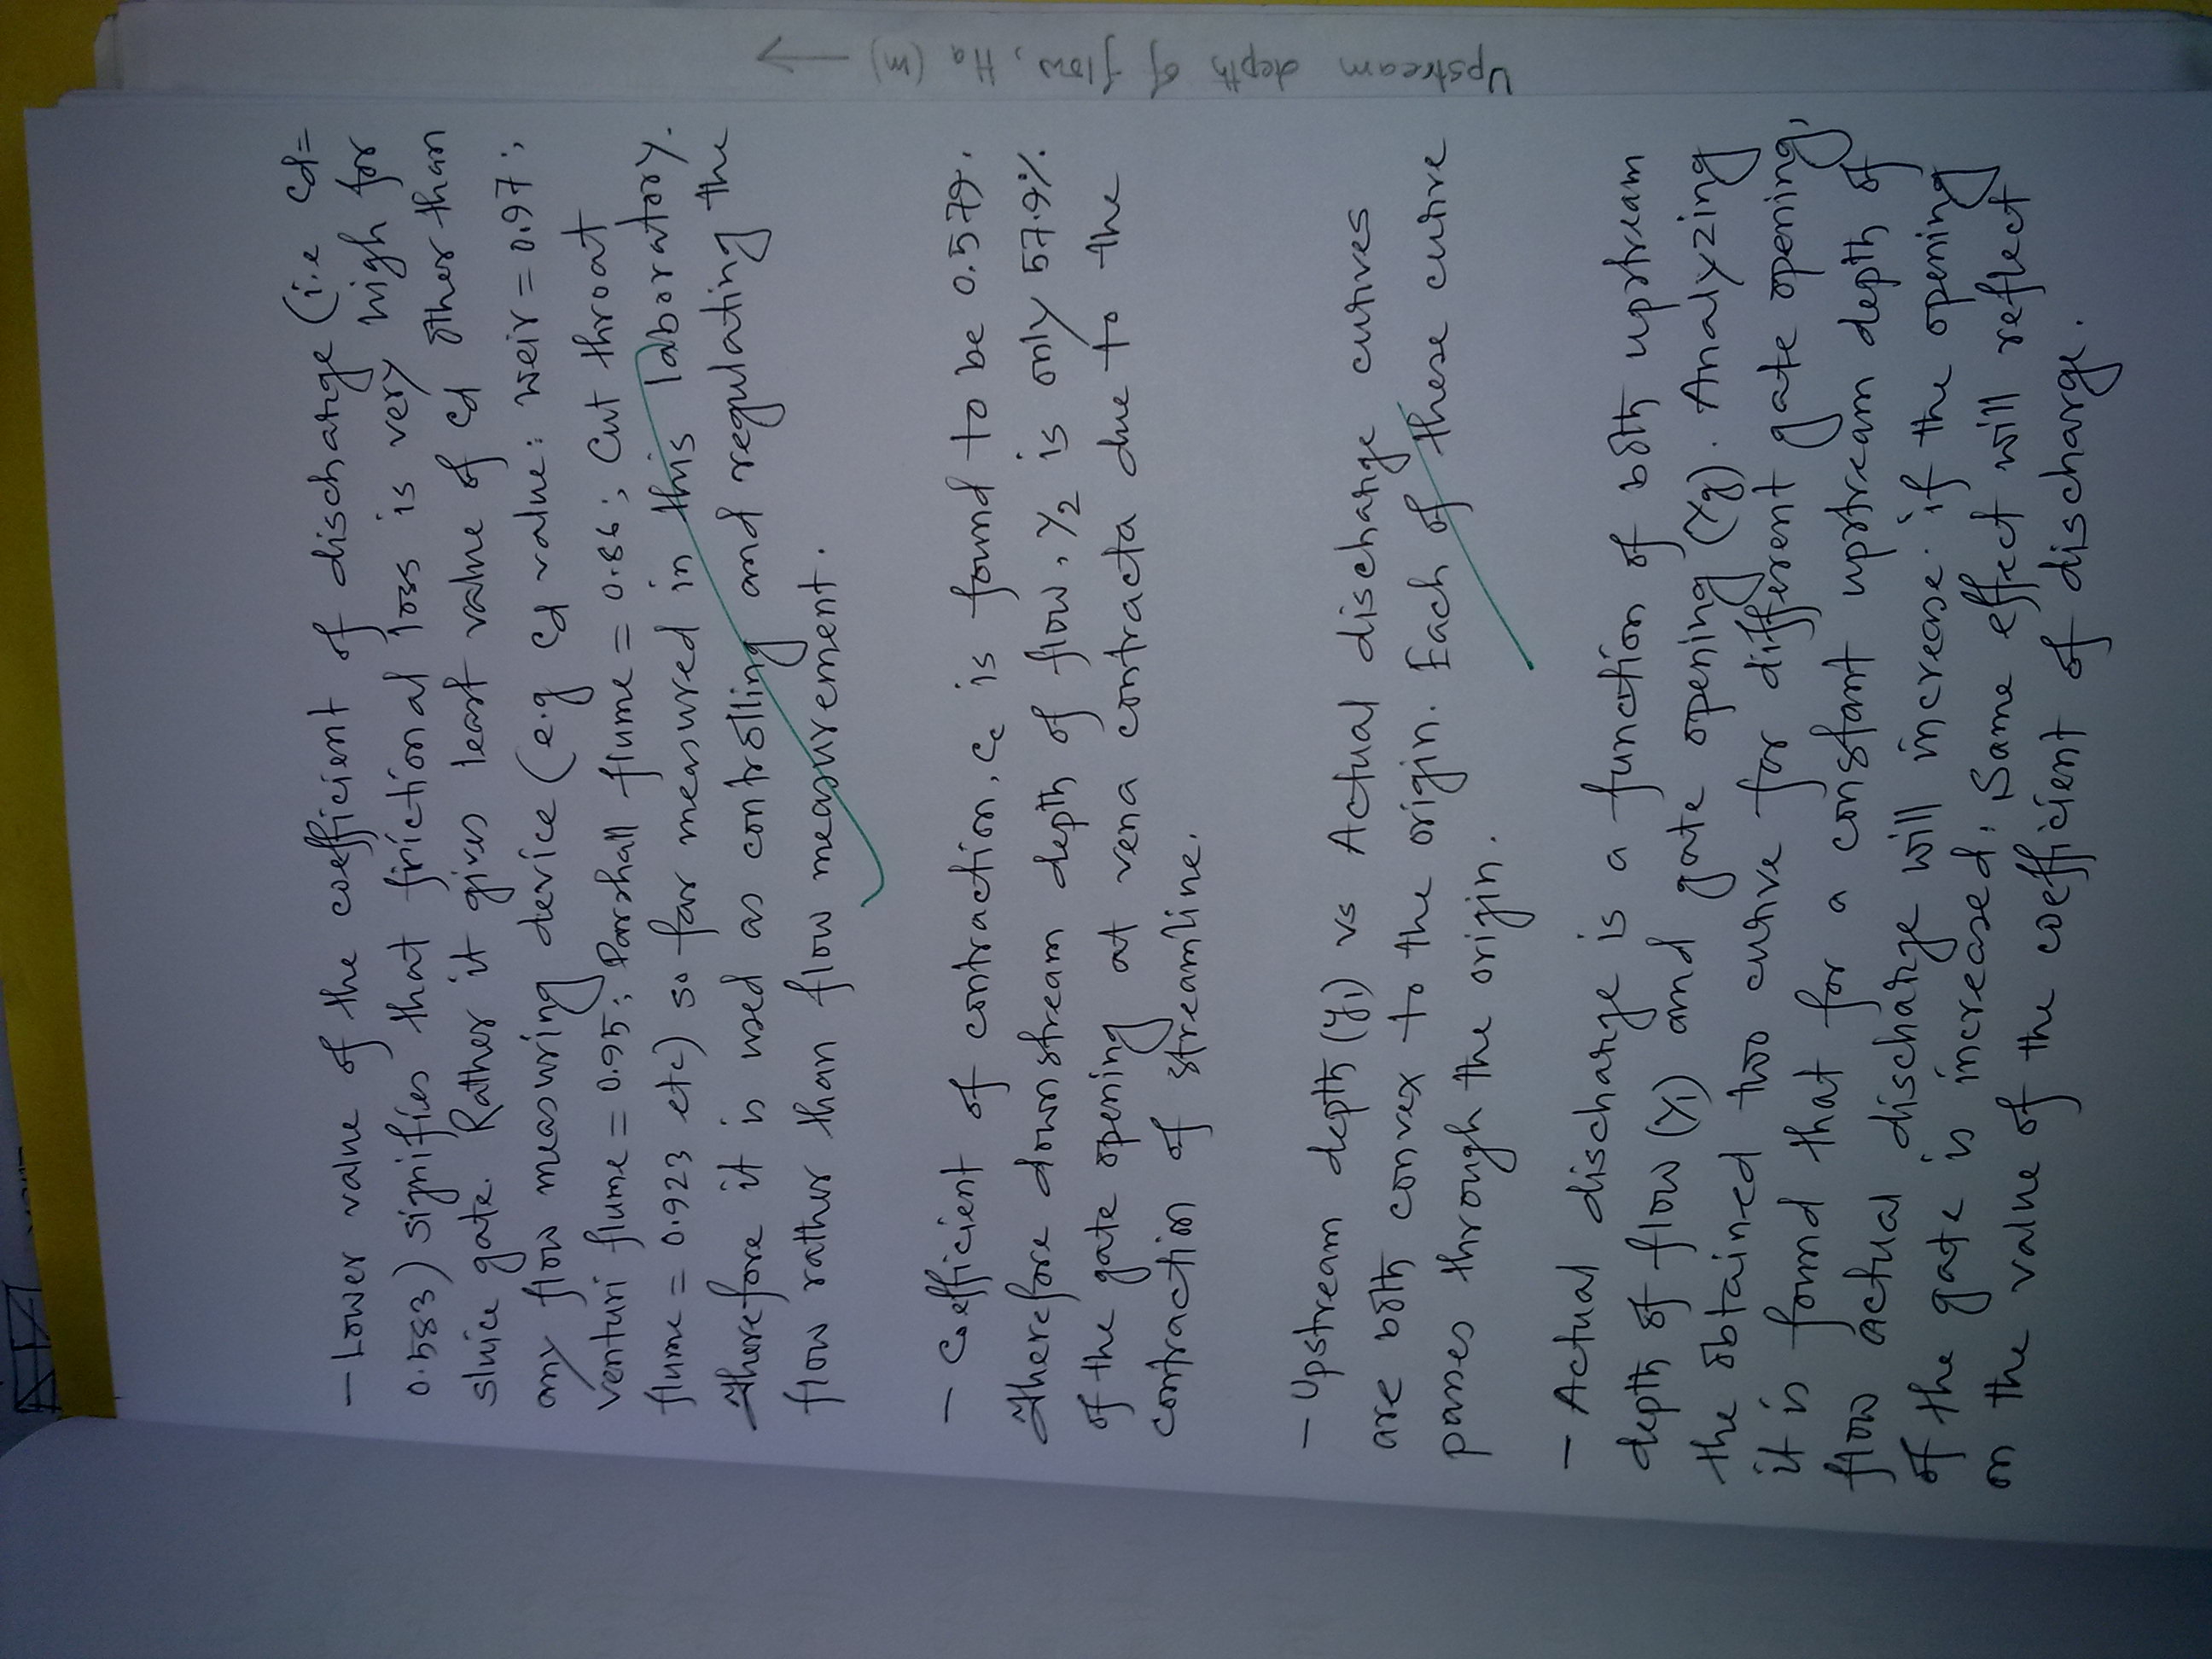 Upstream depth of flow, Ha (m) →
- Lower value of the coefficient of discharge (i.e Cd=
0.583) signifies that frictional loss is very high for
sluice gate. Rather it gives least value of Cd other than
any flow measuring device (e.g Cd value: weir = 0.97;
venturi flume = 0.95; Parshall flume = 0.86; Cut throat
flume = 0.923 etc) so far measured in this laboratory.
Therefore it is used as controlling and regulating the
flow rather than flow measurement.
- Coefficient of contraction, Cc is found to be 0.579.
Therefore downstream depth of flow, Y2 is only 57.9%
of the gate opening at vena contracta due to the
contraction of streamline.
- Upstream depth (y1) vs Actual discharge curves
are both convex to the origin. Each of these curve
passes through the origin.
- Actual discharge is a function of both upstream
depth of flow (Y1) and gate opening (Yg). Analyzing
the obtained two curve for different gate opening,
it is found that for a constant upstream depth of
flow actual discharge will increase if the opening
of the gate is increased. Same effect will reflect
on the value of the coefficient of discharge.